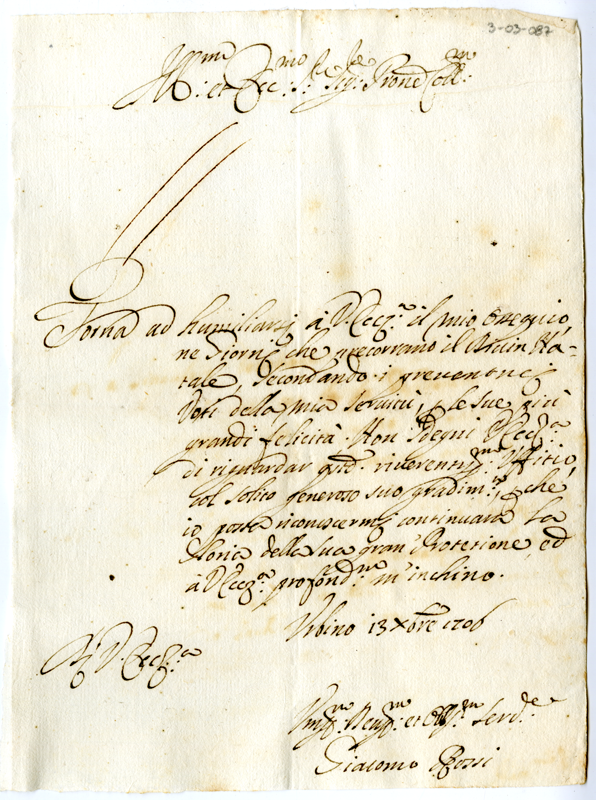 3-03-087
Ill.mo et Ecc.mo S.re Sig.re Prone Coll.mo
Torna ad humiliarsi à V. Ecc.za il mio ossequio,
ne Giorni che precorrano il Divin Na-
tale, secondando i
Voti della mia servitù, le sue più
grandi felicità. Non sdegni l'Ecc.za
di riguardar q.to riverentiss.mo Uffitio,
col solito generoso suo gradim.to, che
io possa riconoscermi continuata la
Gloria della sua gran Protetione, ed
à V. Ecc.za profond.te m'inchino.
Urbino 13 Xbre 1706
Di V. Ecc.za
Um.mo Dev.mo et Obl.mo Serv.re
Giacomo Rossi